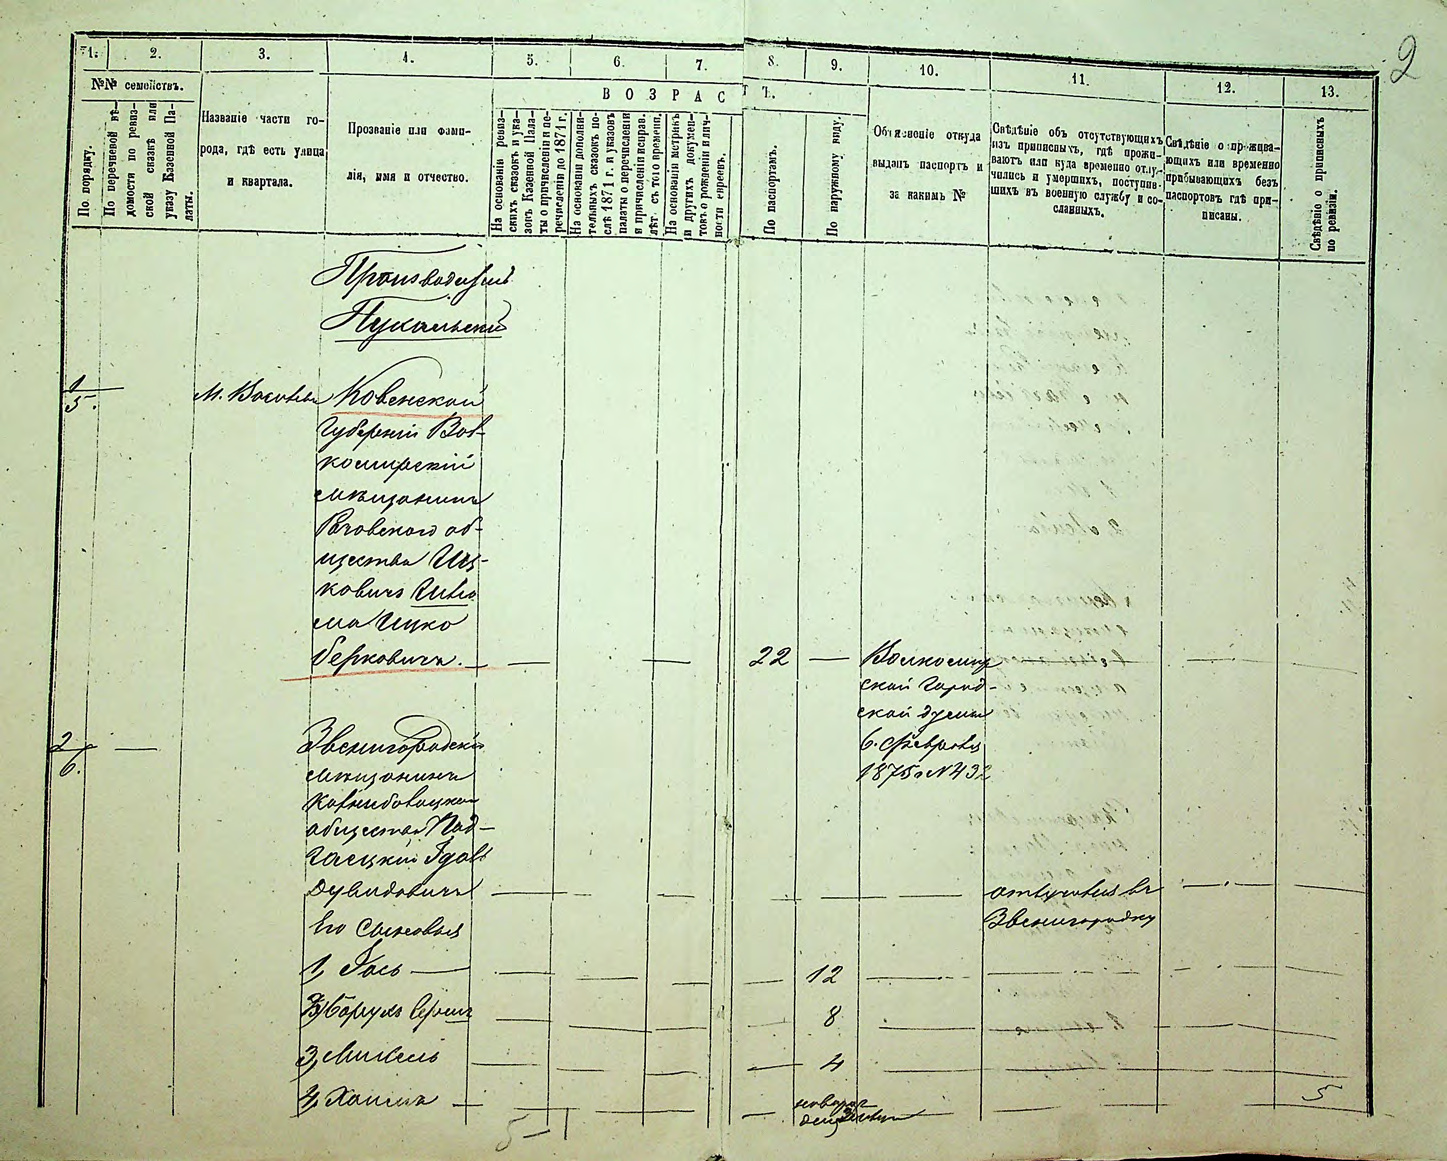 2
1. 2. 3. 4. 5. 6. 7. 8. 9. 10. 11. 12. 13.
№№ семействъ.
По порядку.
По перечневой вѣ-
домости по ревиз-
ской сказкѣ или
указу Казенной Па-
латы.
Названіе части го-
рода, гдѣ есть улица
и квартала.
Прозваніе или фами-
лія, имя и отчество.
ВОЗРАСТЪ.
На основаніи ревиз-
скихъ сказокъ и ука-
зовъ Казенной Пала-
ты о причисленіи и пе-
речисленіи до 1871 г.
На основаніи дополни-
тельныхъ сказокъ по-
слѣ 1871 г. и указовъ
палаты о перечисленіи
и причисленіи исправ.
лѣт. съ того времени.
На основаніи метрикъ
и другихъ докумен-
товъ о рожденіи и лич-
ности евреевъ.
По паспортамъ.
По наружному виду.
Объясненіе откуда
выданъ паспортъ и
за какимъ №
Свѣдѣніе объ отсутствующихъ
изъ приписныхъ, гдѣ прожи-
ваютъ или куда временно отлу-
чились и умершихъ, поступив-
шихъ въ военную службу и со-
сланныхъ.
Свѣдѣніе о прожива-
ющихъ или временно
прибывающихъ безъ
паспортовъ гдѣ при-
писаны.
Свѣдѣніе о приписныхъ
по ревизіи.
Пукальскій
1
5.
Ковенской
Губерніи Вол-
комирскій
мѣщанинъ
об-
щества Иц-
ковичъ
Ицко
Берковичъ. 22
Волкомир-
ской Город-
ской думы
6. Февраля
1875 № 432
2
6.
Звенигородскій
мѣщанинъ
общества Под-
гаецкій
Дувидовичъ
отлучился въ
Звенигородку
Его сыновья
1, Гось 12
2, Борухъ 8
3, 4
4, Хаимъ 5
5